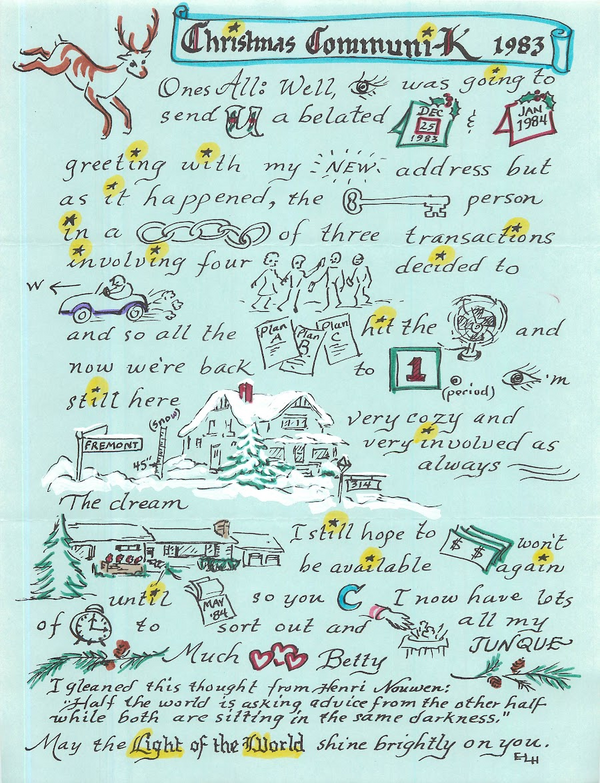 Christmas Communi-K 1983
Ones All: Well, was going to
send U a belated DEC 25 1983 & JAN 1984
greeting with my NEW address but
as it happened, the person
in a of three transactions
involving four decided to
W
and so all the Plan A Plan B Plan C hit the and
now we're back to 1 (period) 'm
still here
very cozy and
FREMONT (snow) very involved as
45" always
314
The dream
I still hope to $ $ won't
be available again
until MAY '84 so you C I now have lots
of to sort out and all my
JUNQUE
Much Betty
I gleaned this thought from Henri Nouwen:
"Half the world is asking advice from the other half
while both are sitting in the same darkness."
May the Light of the World shine brightly on you.
ELH